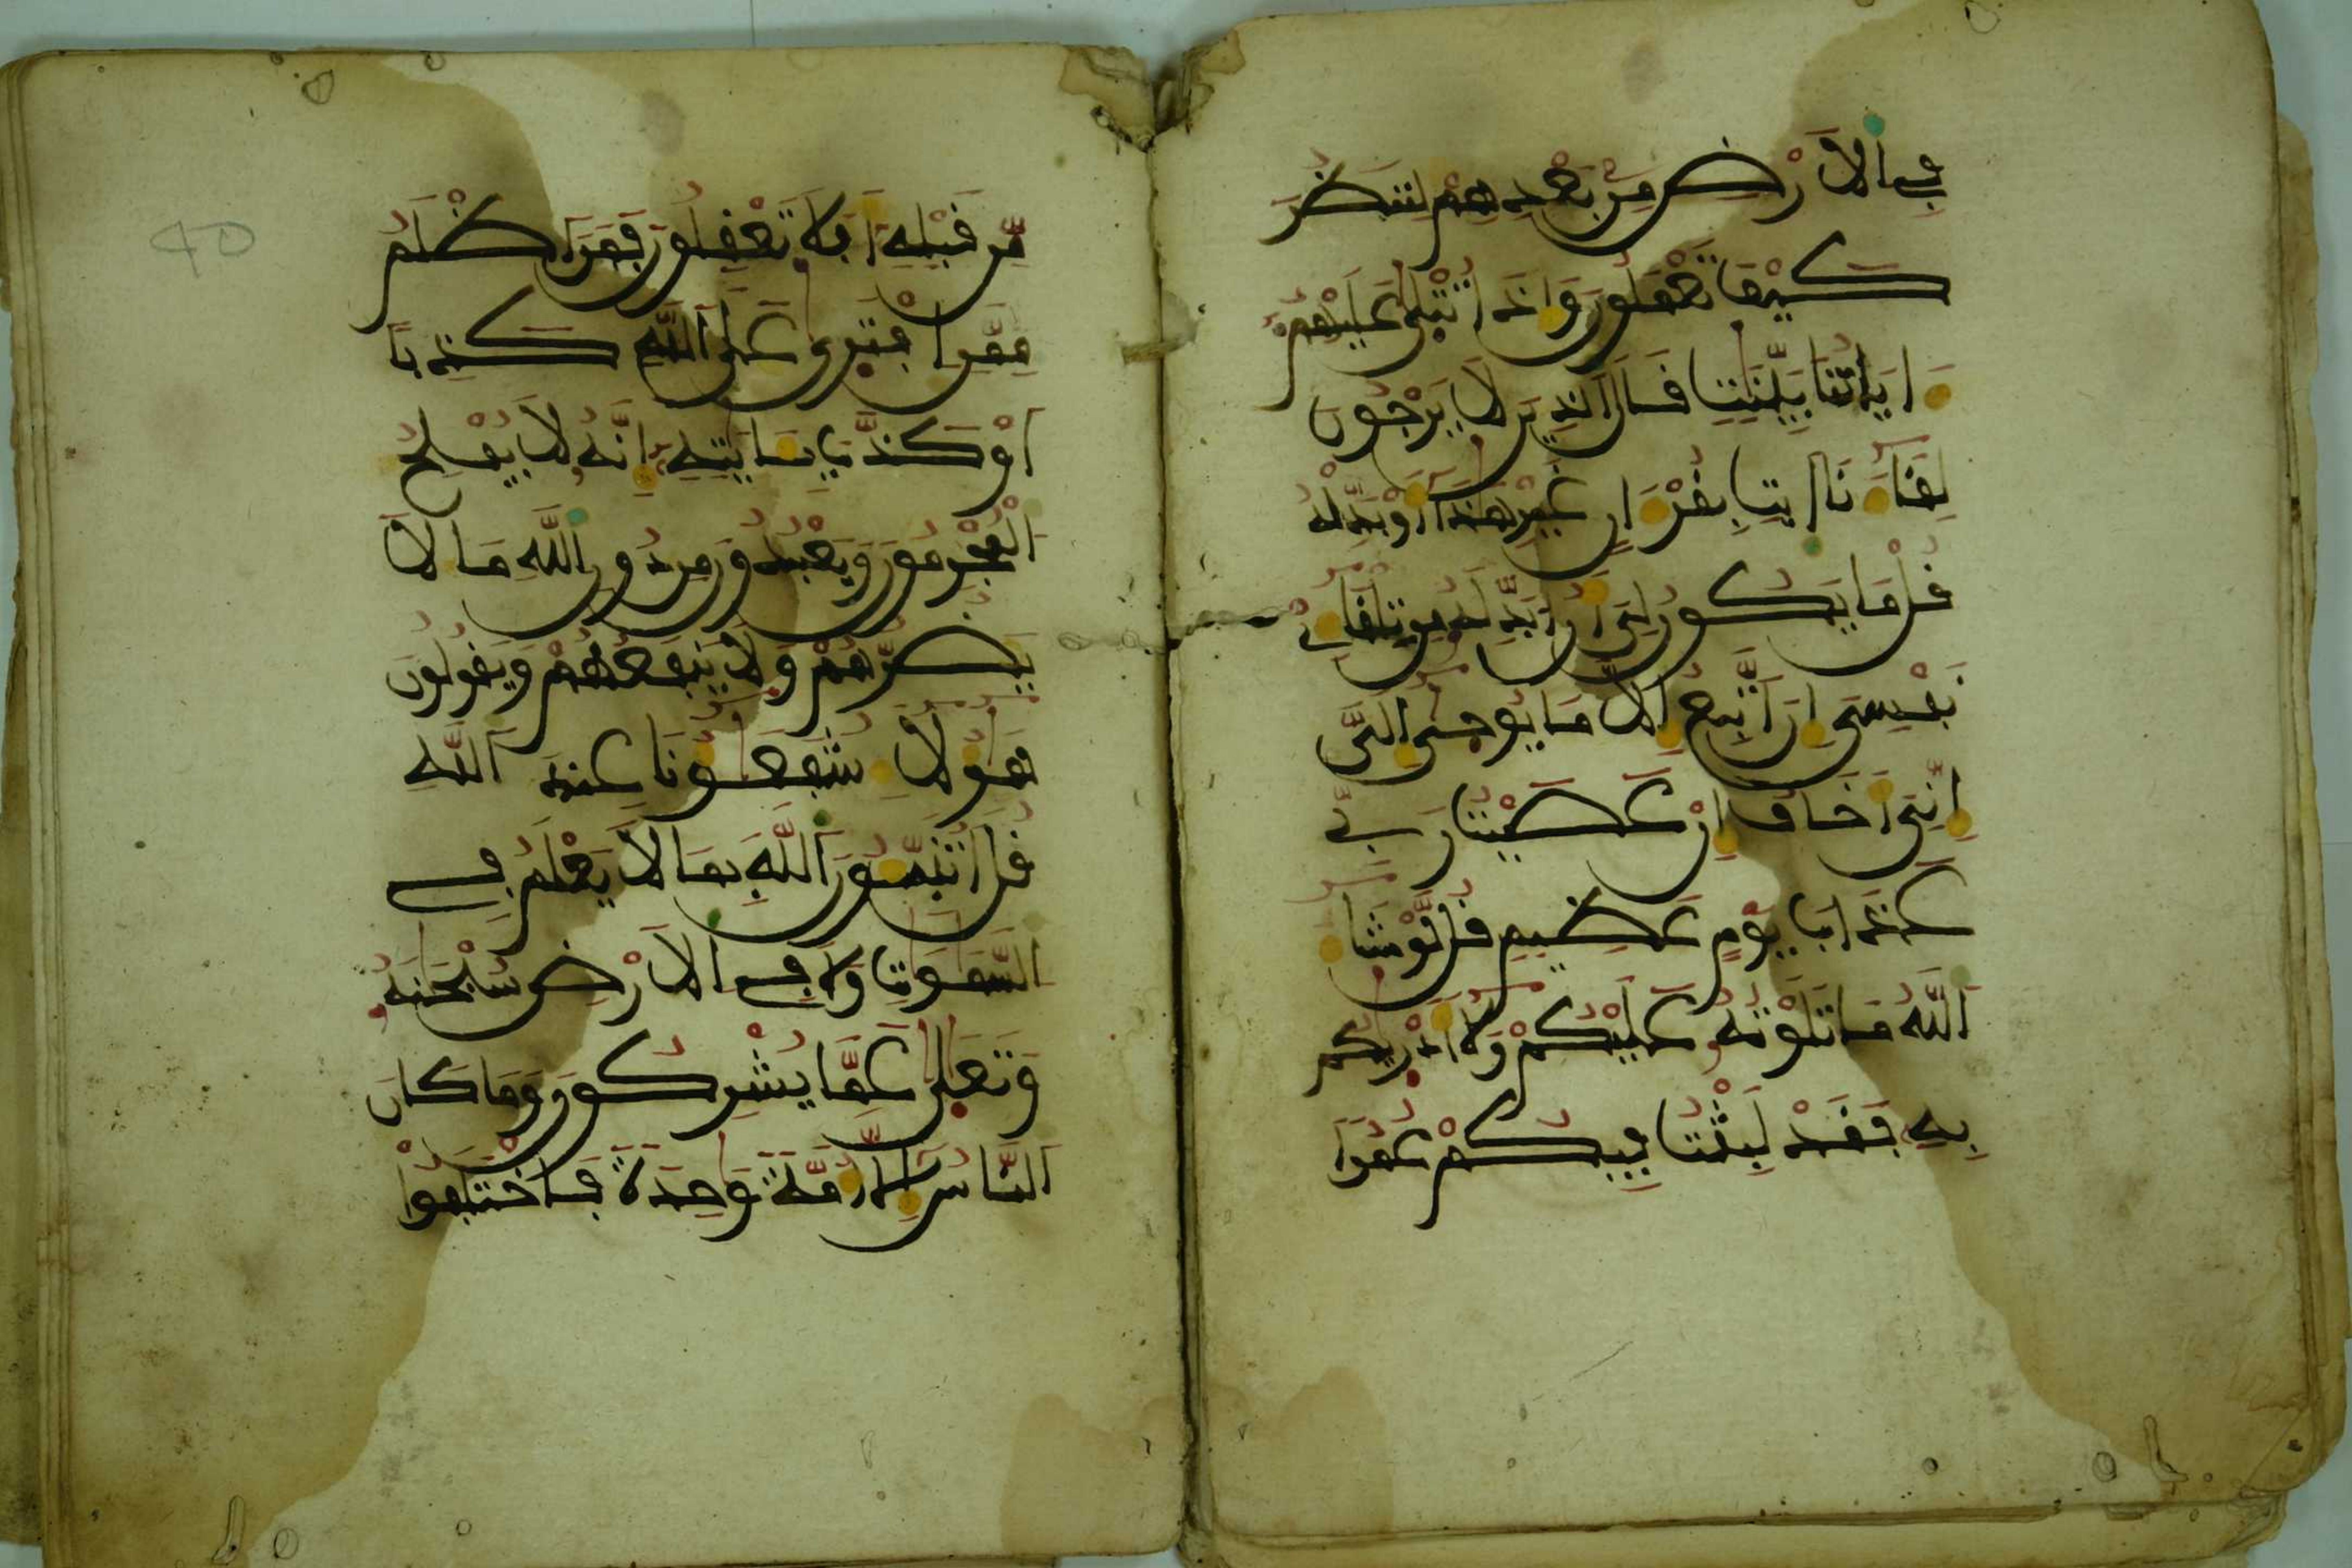 في الارض من بعدهم لننظر
كيف تعملون واذا تتلى عليهم
اياتنا بينت قال الذين لا يرجون
لقاءنا ايت بقرءان غير هذا اوبدله
قل ما يكون لي ان ابدله من تلقاءي
نفسي ان اتبع الا ما يوحى الي
اني اخاف ان عصيت ربي
عذاب يوم عظيم قل لو شاء
الله ما تلوته عليكم ولا ادريكم
به فقد لبثت فيكم عمرا
من قبله افلا تعقلون فمن اظلم
ممن افترى على الله كذبا
او كذب بايته انه لا يفلح
المجرمون ويعبدون من دون الله ما لا
يضرهم ولا ينفعهم ويقولون
هؤلاء شفعؤنا عند الله
قل اتنبون الله بما لا يعلم في
السموت ولا في الارض سبحنه
وتعلى عما يشركون وما كان
الناس الا امة وحدة فاختلفوا
40